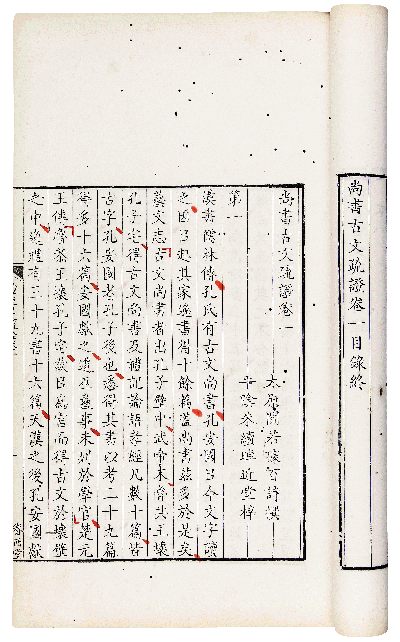 尚書古文疏證卷一目錄終
尚書古文疏證卷一
太原閻若璩百詩撰
平陰朱續晫近堂梓
第一
漢書儒林傳孔氏有古文尚書孔安國㠯今文字讀
之因㠯起其家逸書得十餘篇蓋尚書茲多於是矣
藝文志古文尚書者出孔子壁中武帝末魯共王壞
孔子宅得古文尚書及禮記論語孝經凡數十篇皆
古字孔安國者孔子後也悉得其書以考二十九篇
得多十六篇安國獻之遭巫蠱事未列於學官楚元
王傳魯恭王壞孔子宅欲㠯為宮而得古文於壞壁
之中逸禮有三十九書十六篇天漢之後孔安國獻
眷西堂